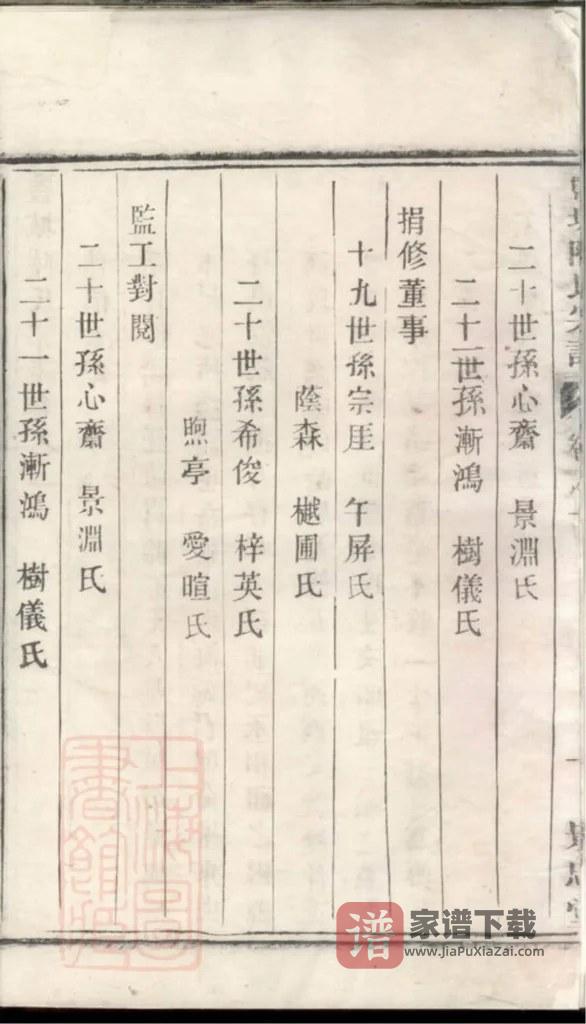 二十世孫心齋 景淵氏
二十一世孫漸鴻 樹儀氏
捐修董事
十九世孫宗厓 午屏氏
蔭森 樾圃氏
二十世孫希俊 梓英氏
煦亭 愛暄氏
監工對閱
二十世孫心齋 景淵氏
二十一世孫漸鴻 樹儀氏
上海圖
書館藏
谱 家谱下载
www.JiaPuXiaZai.com